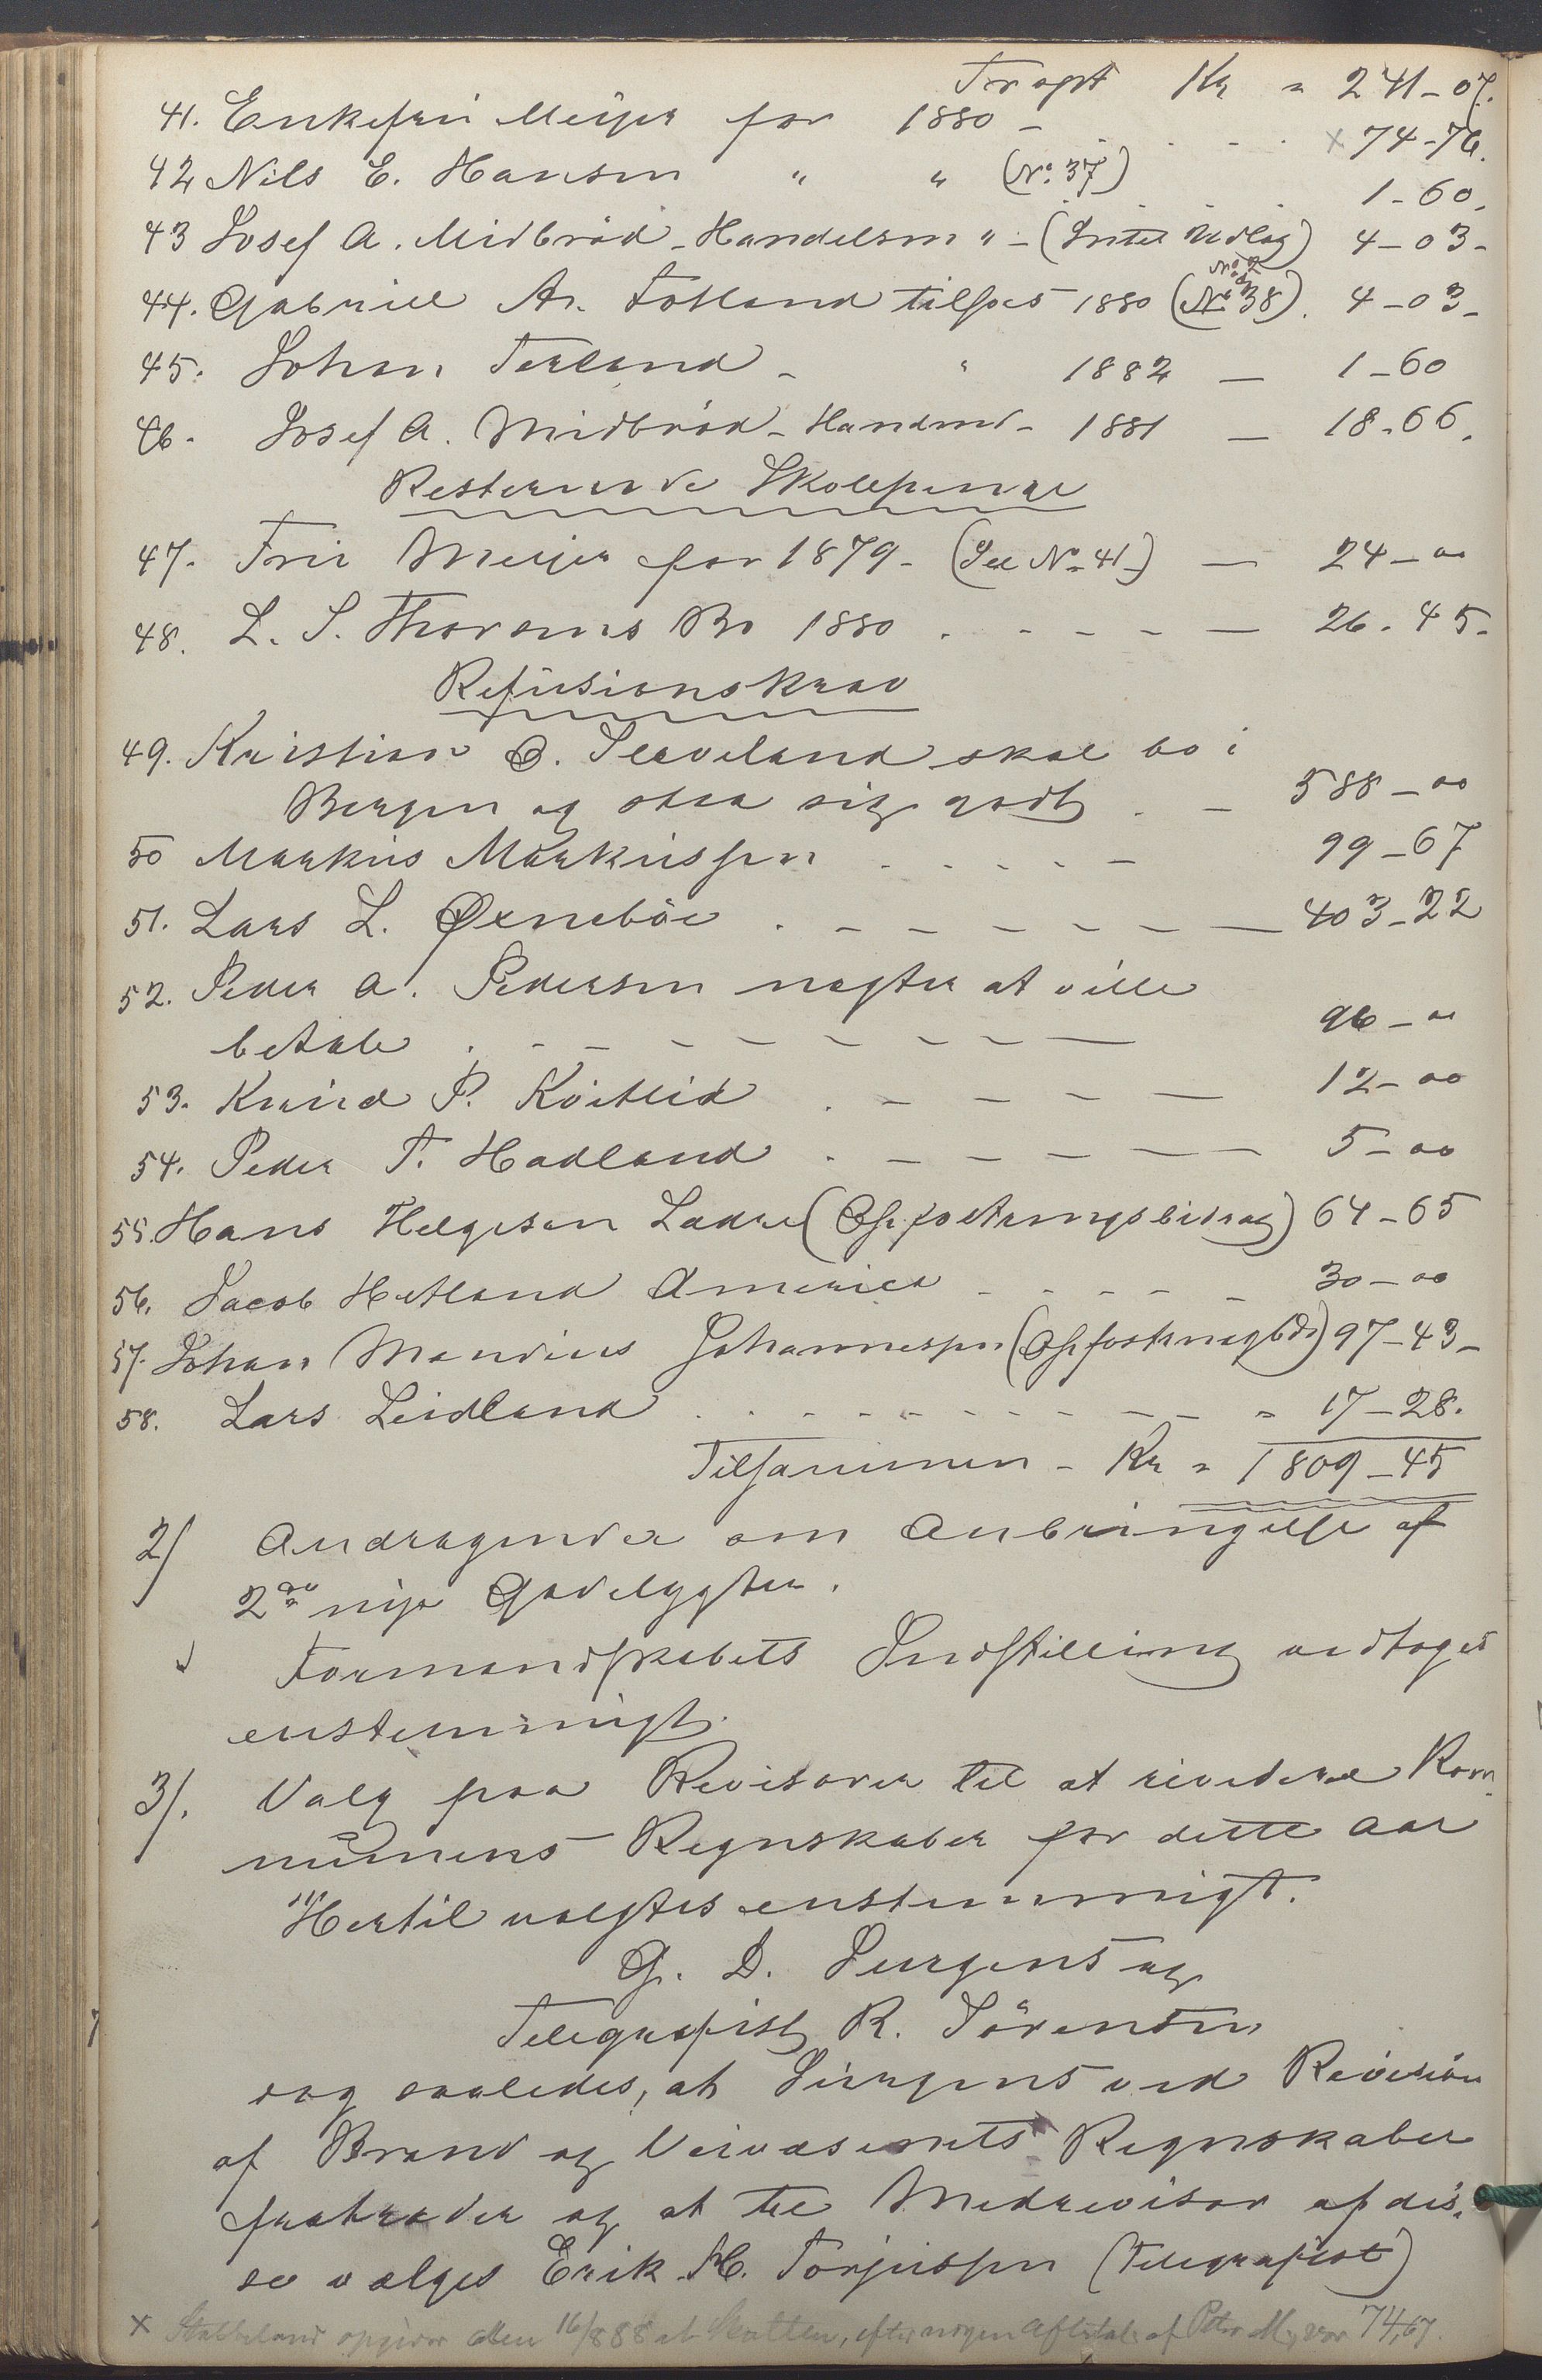 Transpt Kr " 241-07.
41. Enkefru Meijer for 1880 - - - - x 74-76.
42 Nils E. Hansen " " (No. 37) 1-60.
43 Josef A. Midbröd - Handelsm " - (Intet Udlæg) 4-03-
44. Gabriel Ar. Fotland tilfots 1880 (No 38). 4-03-
45. Johan Terland - " 1882 — 1-60
46. Josef A. Midbröd - Handmd - 1881 — 18.66.
Resterende Skolepenge
47. Fru Meijer for 1879 - (See No 41-) — 24-00
48. L. S. Thorsens Bo 1880 . - - - - — 26.45.
Refusionskrav
49. Kristian O. Sleveland skal bo i
Bergen og staa sig godt . - 588-00
50 Markus Markussen . . - . - - 99-67
51. Lars L. Øxneböe . - - - - - — 403-22
52. Peder A. Pedersen nægter at ville
betale . - - - - - - - — 96-00
53. Knud P. Köitlid . - - - — 12-00
54. Peder T. Hadland . - - - - — 5-00
55. Hans Helgesen Ladre (Opfostringsbidrag) 64-65
56. Jacob Hetland America - - - - - 30-00
57. Johan Mandius Johannessen (Opfostringsbdr) 97-43-
58. Lars Leidland . - - - - - - - - " 17-28.
Tilsammen - Kr " 1809-45
2/ Andragender om Anbringelse af
2de nye Gadelygter.
Formandskabets Indstilling vedtoges
enstemmigt.
3/. Valg paa Revisorer til at revidere Kom-
munens Regnskaber for dette Aar
Hertil valgtes enstemmigt.
G. D. Jurgens og
Telegrafist R. Sörensen
dog saaledes, at Jürgens ved Revision
af Brand og Veivæsenets Regnskaber
fratræder og at til Medrevisor af dis-
se vælges Erik M. Torjussen (Telegrafist)
x Stalleland opgiver den 16/8 88 at Skatten, efter nogen Afbetale af Peter M., var 74,67.